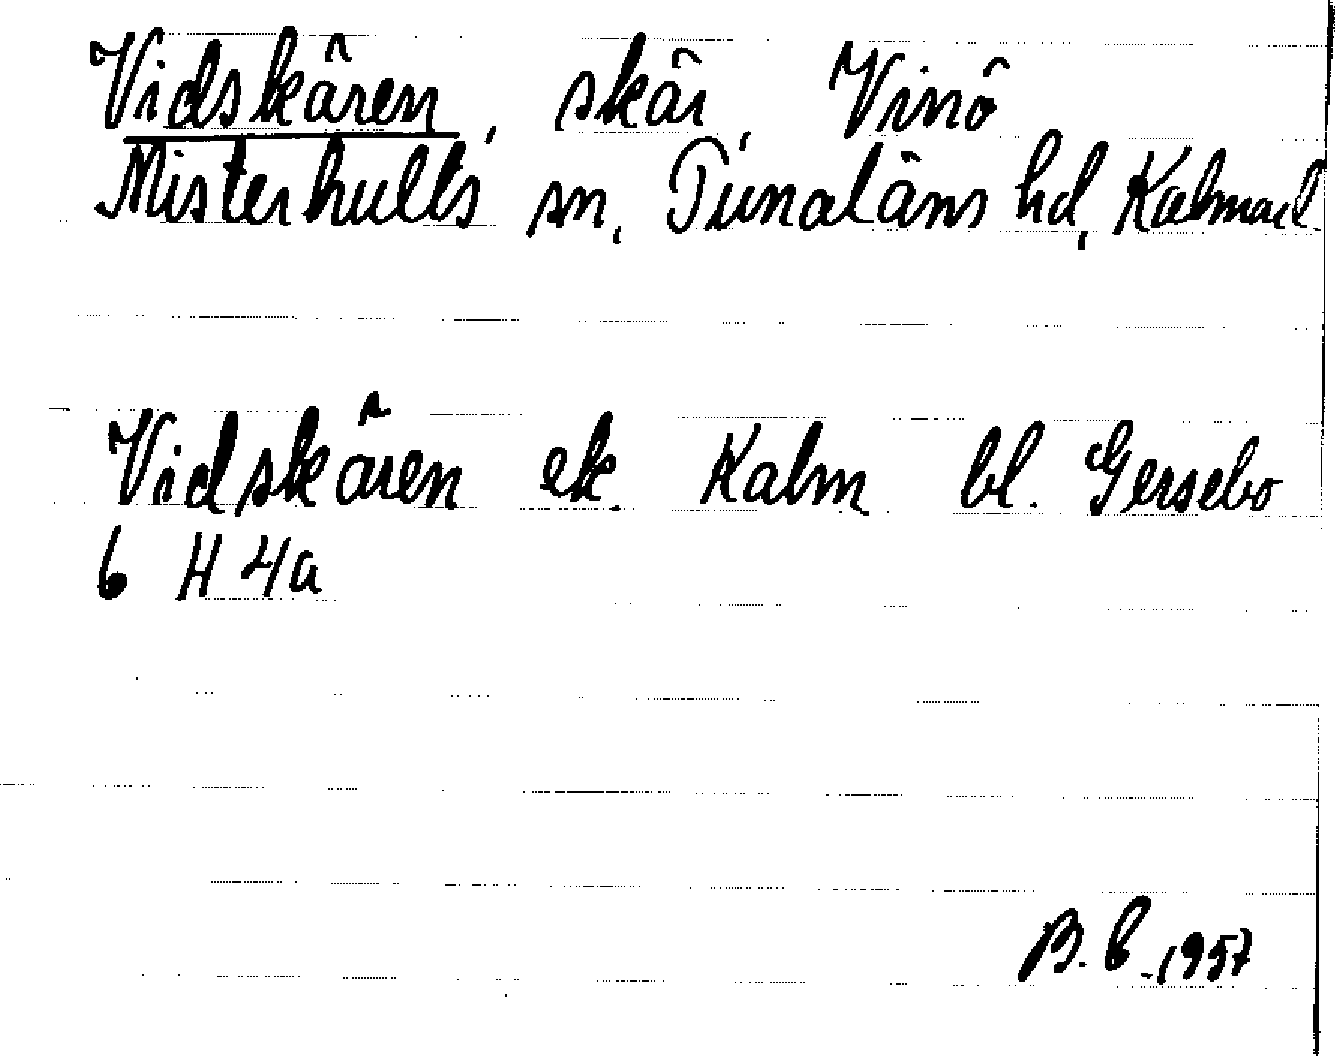 Vidskären, skär, Vinö
Misterhults sn, Tunaläns hd, Kalmar l
Vidskären ek. Kalm bl. Gersebo
6 H 4a
B. C. 1957